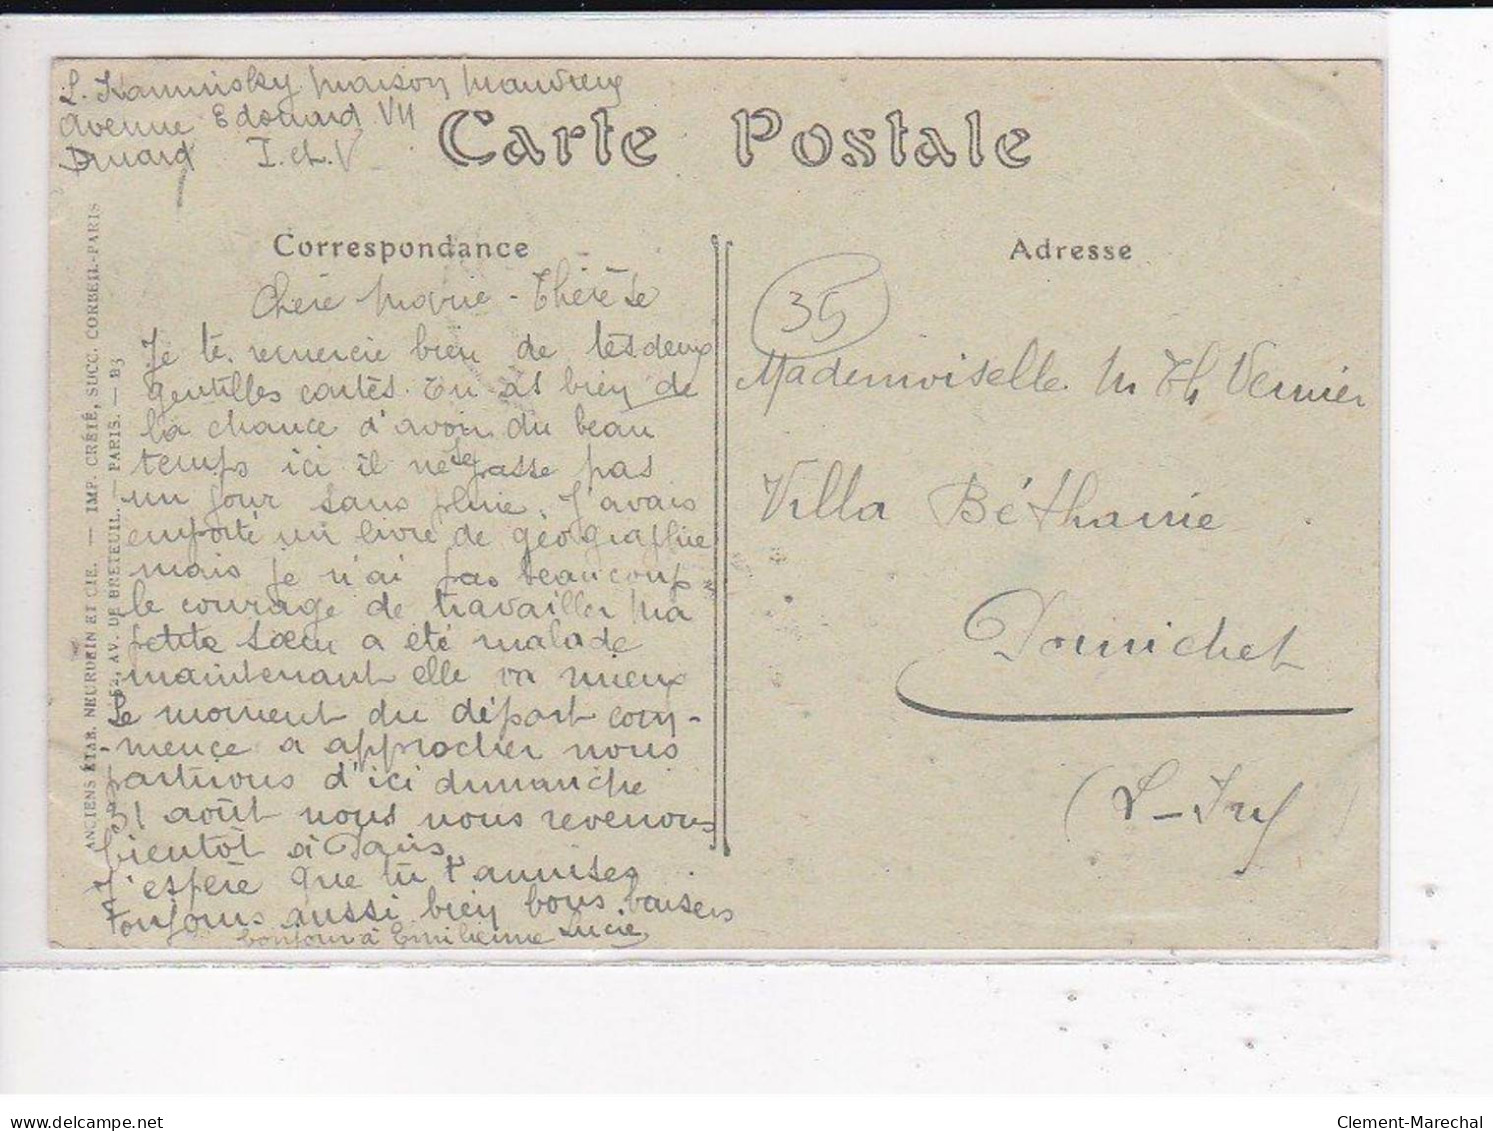 L. Kaminsky Maison
Avenue Edouard VII
Dinard I. et V
Carte Postale
Correspondance
Adresse
ANCIENS ÉTAB. NEURDEIN ET CIE. — IMP. CRÉTÉ, SUCC. CORBEIL-PARIS
52, AV. DE BRETEUIL. — PARIS. — B3
Chère Marie-Thérèse
Je te remercie bien de tes deux
gentilles cartes. Tu as bien de
la chance d'avoir du beau
temps ici il ne se passe pas
un jour sans pluie. J'avais
emporté un livre de géographie
mais je n'ai pas beaucoup
le courage de travailler Ma
petite sœur a été malade
maintenant elle va mieux
Le moment du départ com-
mence a approcher nous
partirons d'ici dimanche
31 août nous nous revenons
bientôt à Paris
J'espère que tu t'amuses
toujours aussi bien bons baisers
bonjour à Emilienne Lucie
35
Mademoiselle M Th Vernier
Villa Béthanie
Pornichet
(L-Inf)
www.delcampe.net
Clement-Marechal